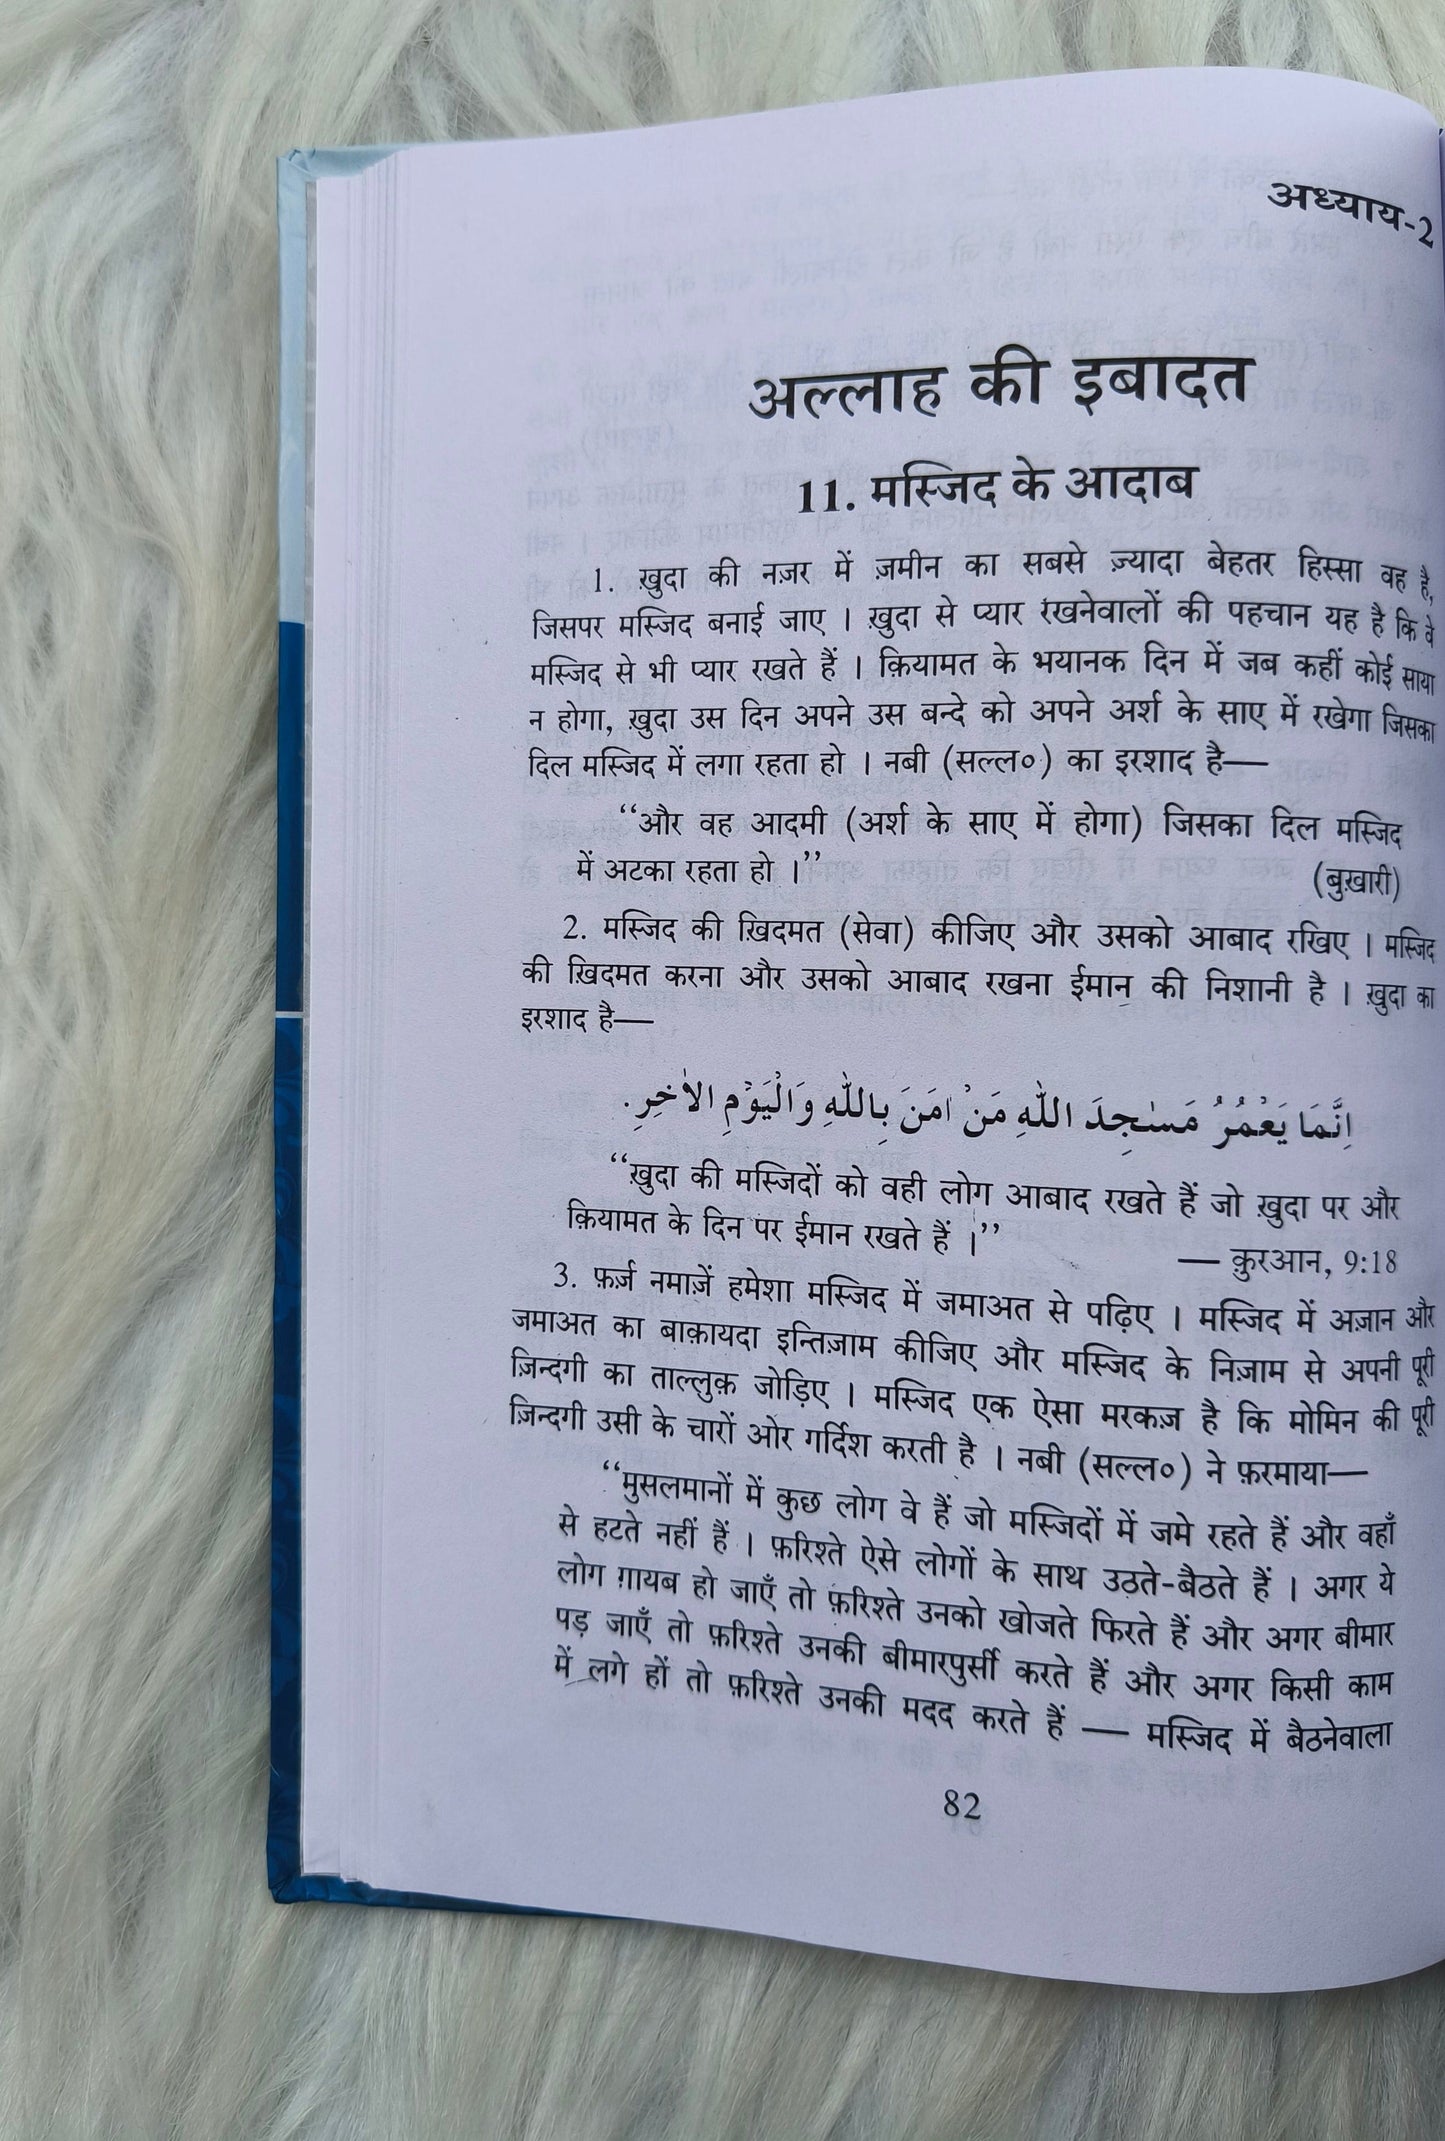 अध्याय-2
अल्लाह की इबादत
11. मस्जिद के आदाब
1. ख़ुदा की नज़र में ज़मीन का सबसे ज़्यादा बेहतर हिस्सा वह है,
जिसपर मस्जिद बनाई जाए । ख़ुदा से प्यार रखनेवालों की पहचान यह है कि वे
मस्जिद से भी प्यार रखते हैं । क़ियामत के भयानक दिन में जब कहीं कोई साया
न होगा, ख़ुदा उस दिन अपने उस बन्दे को अपने अर्श के साए में रखेगा जिसका
दिल मस्जिद में लगा रहता हो । नबी (सल्ल०) का इरशाद है—
“और वह आदमी (अर्श के साए में होगा) जिसका दिल मस्जिद
में अटका रहता हो ।” (बुख़ारी)
2. मस्जिद की ख़िदमत (सेवा) कीजिए और उसको आबाद रखिए । मस्जिद
की ख़िदमत करना और उसको आबाद रखना ईमान की निशानी है । ख़ुदा का
इरशाद है—
اِنَّمَا يَعْمُرُ مَسٰجِدَ اللّٰهِ مَنْ اٰمَنَ بِاللّٰهِ وَالْيَوْمِ الْاٰخِرِ.
“ख़ुदा की मस्जिदों को वही लोग आबाद रखते हैं जो ख़ुदा पर और
क़ियामत के दिन पर ईमान रखते हैं ।” — क़ुरआन, 9:18
3. फ़र्ज़ नमाज़ें हमेशा मस्जिद में जमाअत से पढ़िए । मस्जिद में अज़ान और
जमाअत का बाक़ायदा इन्तिज़ाम कीजिए और मस्जिद के निज़ाम से अपनी पूरी
ज़िन्दगी का ताल्लुक़ जोड़िए । मस्जिद एक ऐसा मरकज़ है कि मोमिन की पूरी
ज़िन्दगी उसी के चारों ओर गर्दिश करती है । नबी (सल्ल०) ने फ़रमाया—
“मुसलमानों में कुछ लोग वे हैं जो मस्जिदों में जमे रहते हैं और वहाँ
से हटते नहीं हैं । फ़रिश्ते ऐसे लोगों के साथ उठते-बैठते हैं । अगर ये
लोग ग़ायब हो जाएँ तो फ़रिश्ते उनको खोजते फिरते हैं और अगर बीमार
पड़ जाएँ तो फ़रिश्ते उनकी बीमारपुर्सी करते हैं और अगर किसी काम
में लगे हों तो फ़रिश्ते उनकी मदद करते हैं — मस्जिद में बैठनेवाला
82